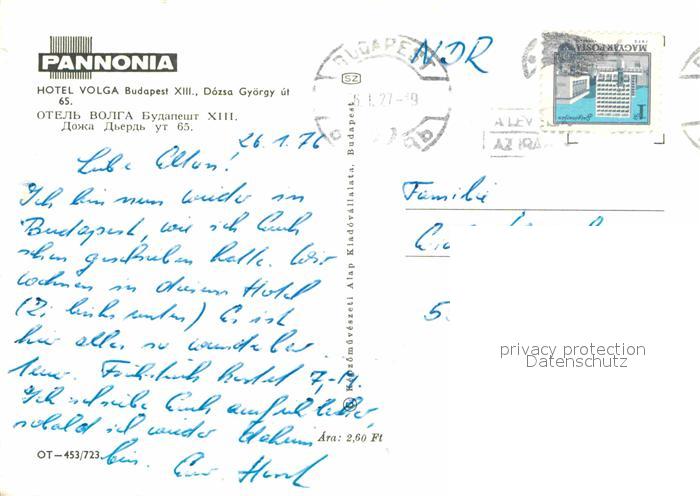 PANNONIA
HOTEL VOLGA Budapest XIII., Dózsa György út
65.
ОТЕЛЬ ВОЛГА Будапешт XIII.
Дожа Дьердь ут 65.
26.1.76
Liebe Eltern!
Ich bin nun wieder in
Budapest, wie ich Euch
schon geschrieben hatte. Wir
wohnen in diesem Hotel
(Zi links unten) Es ist
hier alles so wunderbar
teuer. Frühstück kostet 7,-M.
Ich schreibe Euch ausführlicher,
sobald ich wieder daheim
bin. Euer
Ára: 2,60 Ft
OT—453/723
Képzőművészeti Alap Kiadóvállalata, Budapest
SZ
BUDAPEST
NDR
A LEVÉ
AZ IRÁ
MAGYAR POSTA
1 Ft
Familie
5.
privacy protection
Datenschutz